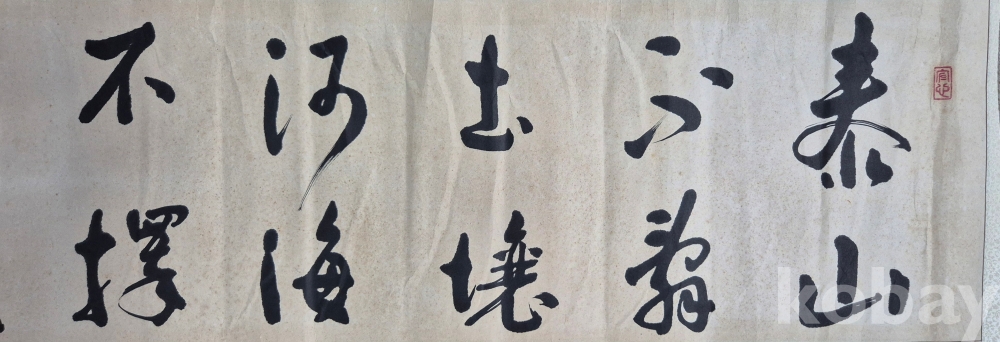 泰山
不辭
土壤
河海
不擇
kobay